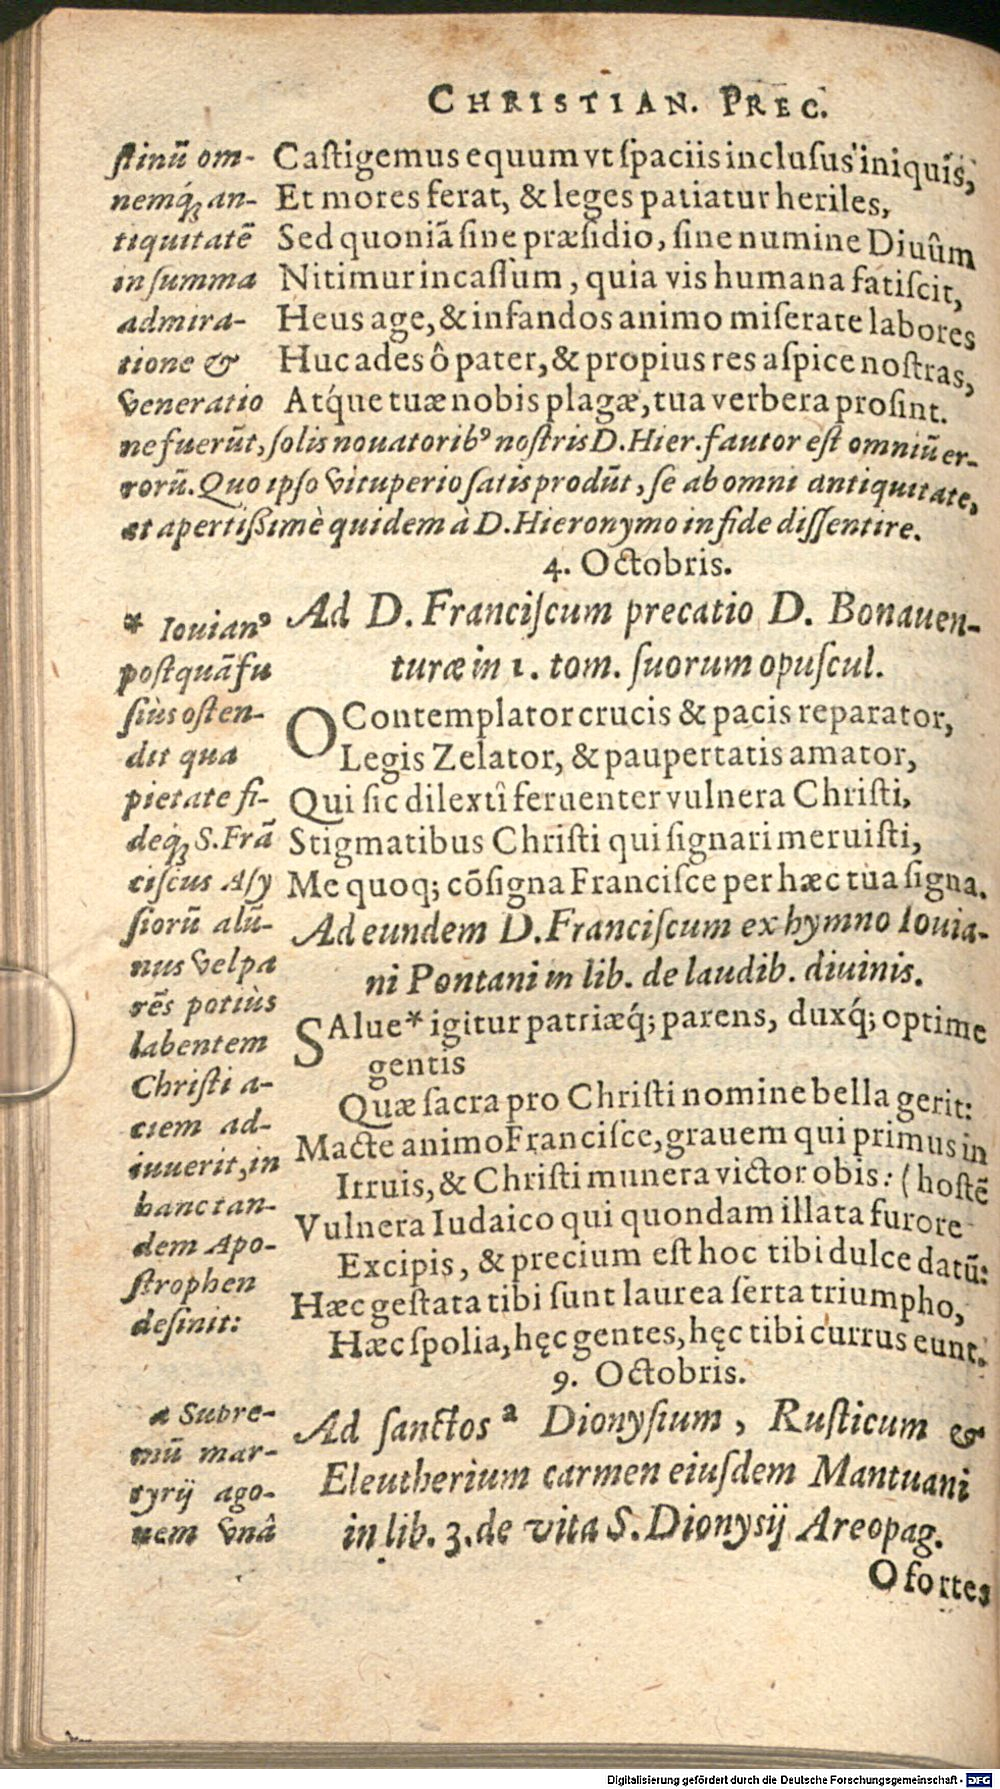 CHRISTIAN. PREC.
Castigemus equum vt spaciis inclusus iniquîs,
Et mores ferat, & leges patiatur heriles,
Sed quoniã sine præsidio, sine numine Diuûm
Nitimur incassum, quia vis humana fatiscit,
Heus age, & infandos animo miserate labores
Huc ades ô pater, & propius res aspice nostras,
Atq́ue tuæ nobis plagæ, tua verbera prosint.
stinũ om-
nemq́ꝫ an-
tiquitatẽ
in summa
admira-
tione &
veneratio
ne fuerũt, solis nouatoribꝰ nostris D. Hier. fautor est omniũ er-
rorũ. Quo ipso vituperio satis produ̅t, se ab omni antiquitate,
et apertißimè quidem à D. Hieronymo in fide dissentire.
4. Octobris.
Ad D. Franciscum precatio D. Bonauen-
turæ in 1. tom. suorum opuscul.
O Contemplator crucis & pacis reparator,
Legis Zelator, & paupertatis amator,
Qui sic dilextî feruenter vulnera Christi,
Stigmatibus Christi qui signari meruisti,
Me quoq; cõsigna Francisce per hæc tua signa.
Ad eundem D. Franciscum ex hymno Iouia-
ni Pontani in lib. de laudib. diuinis.
SAlue* igitur patriæq́; parens, duxq́; optime
gentis
Quæ sacra pro Christi nomine bella gerit:
Macte animo Francisce, grauem qui primus in
Irruis, & Christi munera victor obis: (hostẽ
Vulnera Iudaico qui quondam illata furore
Excipis, & precium est hoc tibi dulce datũ:
Hæc gestata tibi sunt laurea serta triumpho,
Hæc spolia, hęc gentes, hęc tibi currus eunt.
* Iouianꝰ
postquã fu
siùs osten-
dit qua
pietate fi-
deq́ꝫ S. Frã
ciscus Asy
siorũ alũ-
nus vel pa
rẽs potiùs
labentem
Christi a-
ciem ad-
iuuerit, in
hanc tan-
dem Apo-
strophen
desinit:
9. Octobris.
Ad sanctos ª Dionysium, Rusticum &
Eleutherium carmen eiusdem Mantuani
in lib. 3. de vita S. Dionysij Areopag.
a Supre-
mũ mar-
tyrij ago-
nem vnâ
O fortes
Digitalisierung gefördert durch die Deutsche Forschungsgemeinschaft - DFG